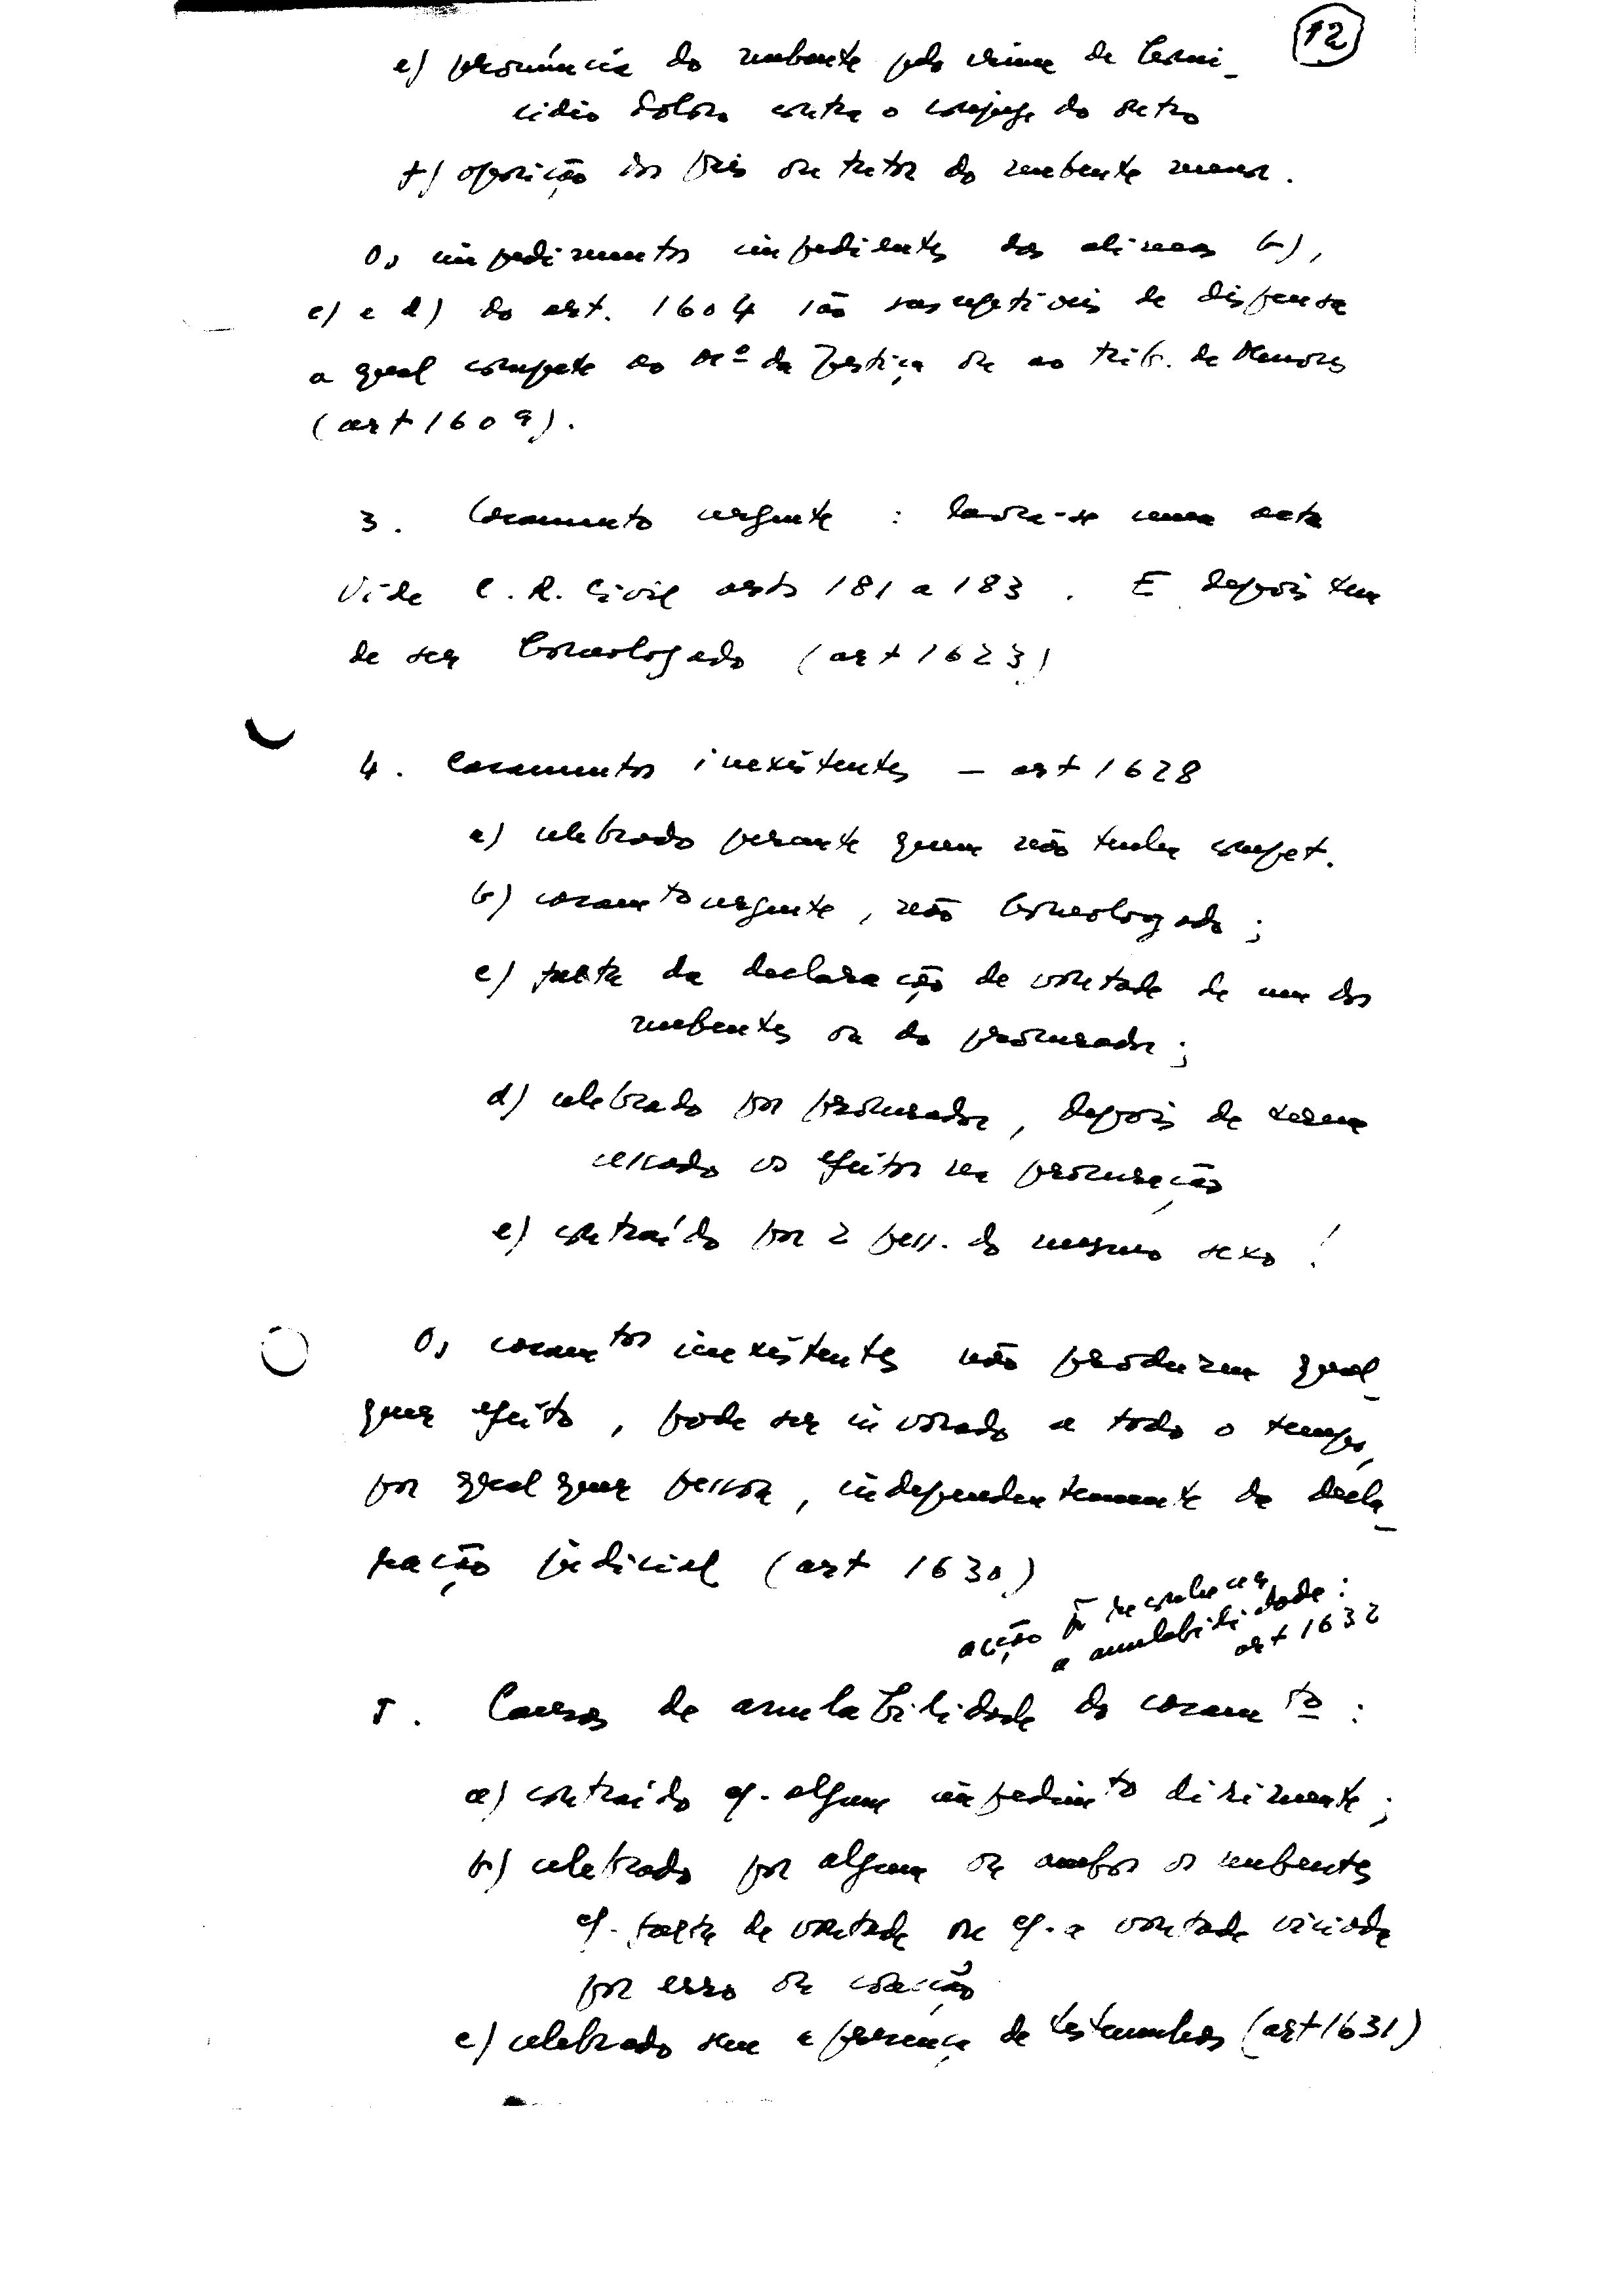 12
e) pronúncia do nubente pelo crime de homi-
cídio doloso contra o conjuge do outro
f) oposição dos pais ou tutor do nubente menor.
Os impedimentos impedientes das alineas b),
c) e d) do art. 1604 são susceptiveis de dispensa
a qual compete ao Mº da Justiça ou ao trib. de Menores
(art 1609).
3. Casamento urgente : lavra-se uma acta
Vide C. R. Civil arts 181 a 183 . E depois tem
de ser homologado (art 1623)
4. Casamentos inexistentes - art 1628
a) celebrado perante quem não tenha compet.
b) casamto urgente, não homologado ;
c) falta da declaração de vontade de um dos
nubentes ou do procurador ;
d) celebrado por procurador, depois de terem
cessado os efeitos da procuração
e) contraído por 2 pess. do mesmo sexo !
Os casamtos inexistentes não produzem qual-
quer efeito, pode ser invocado a todo o tempo,
por qualquer pessoa, independentemente da decla-
ração judicial (art 1630)
acção pª reconhecer
a anulabilidade :
art 1632
5. Causas de anulabilidade do casamto :
a) contraído c/. algum impedimto dirimente ;
b) celebrado por algum ou ambos os nubentes
c/. falta de vontade ou c/. a vontade viciada
por erro ou coacção
c) celebrado sem a presença de testemunhas (art 1631)